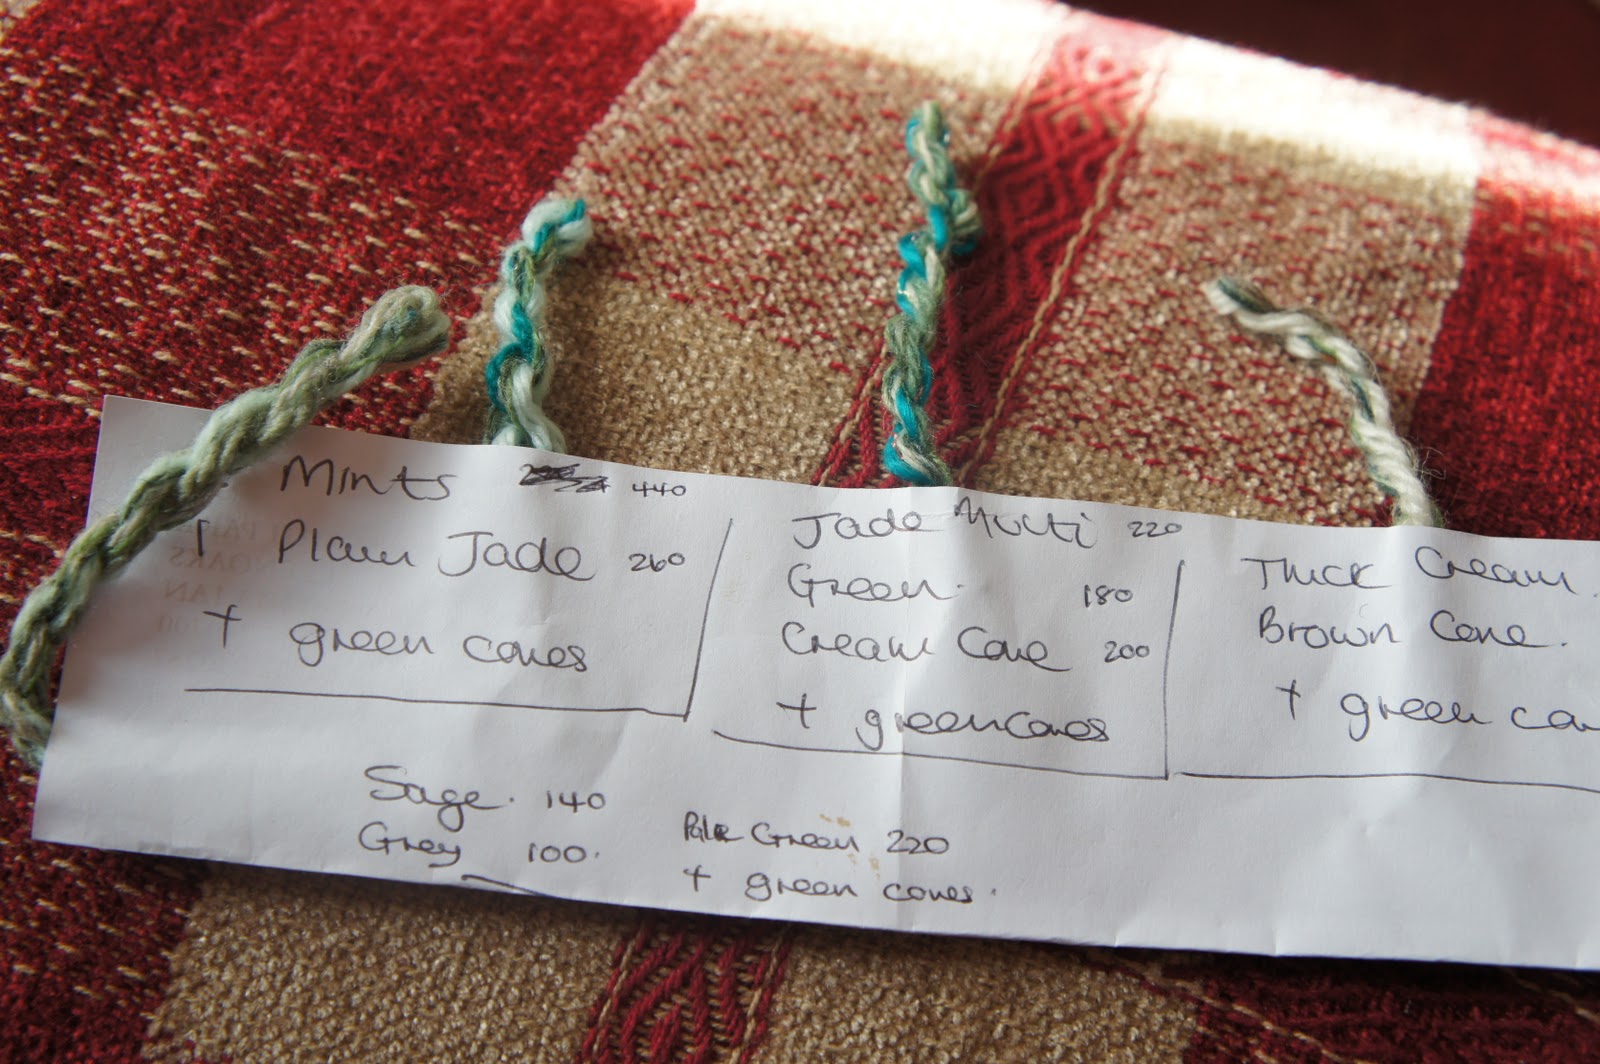 Mints 440
1 Plain Jade 260
+ green cones
Jade Multi 220
Green. 180
Cream Cone 200
+ green cones
Thick Cream.
Brown Cone.
+ green co
Sage. 140
Grey 100.
Pale Green 220
+ green cones.